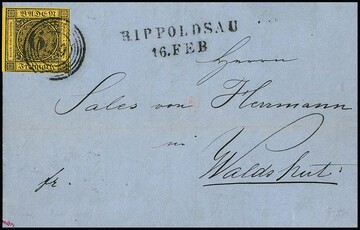 BADEN
Freimarke
RIPPOLDSAU
16. FEB
Herrn
Sales von Herrmann
in
Waldshut
fr.